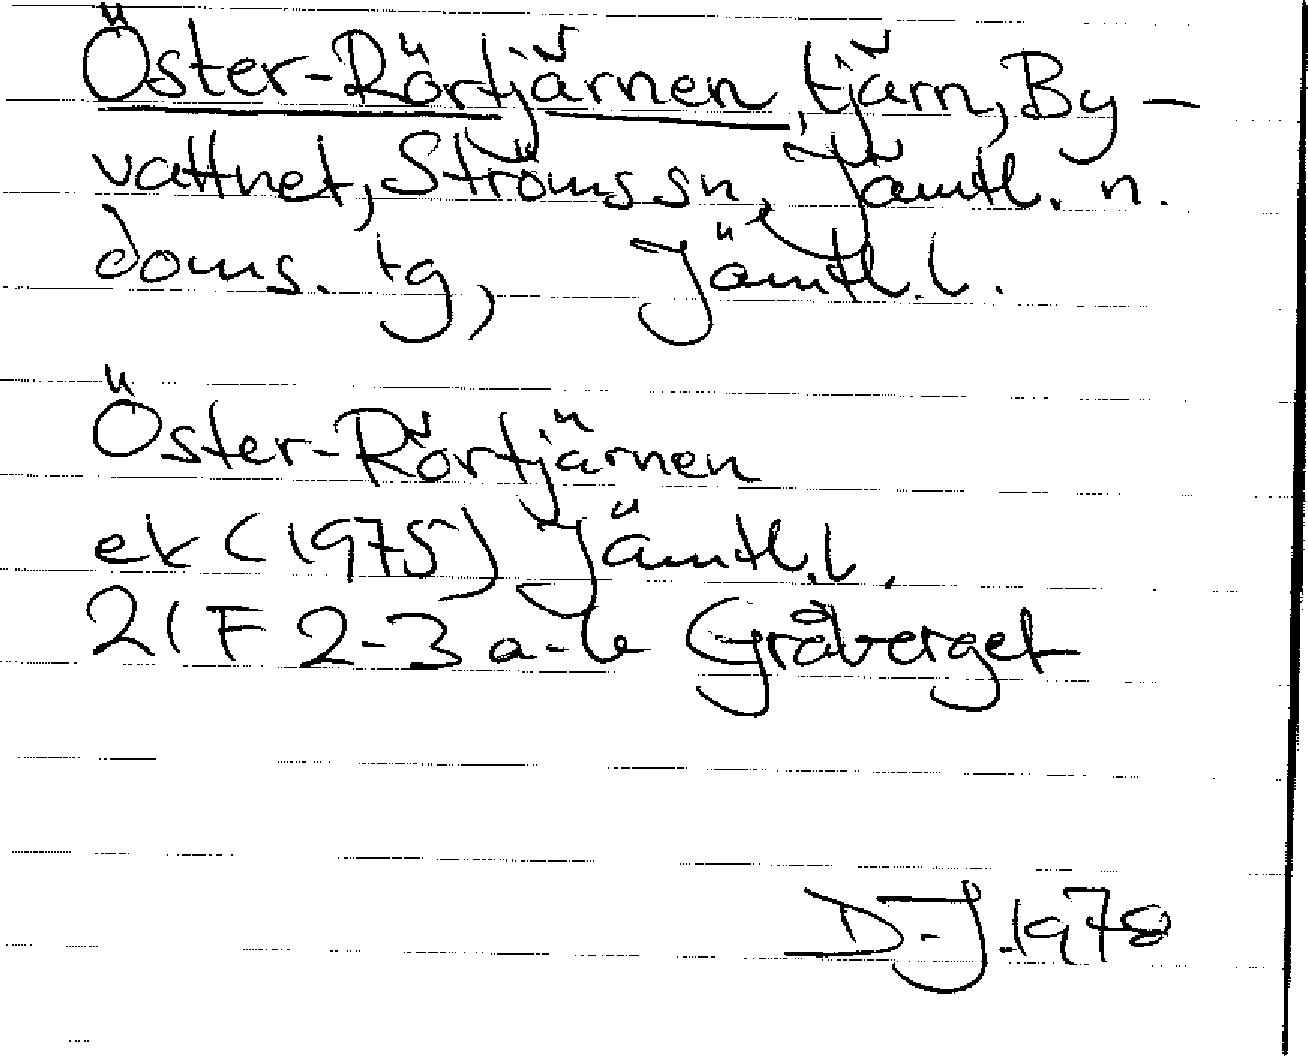 Öster-Rörtjärnen, tjärn, By-
vattnet, Ströms sn, Jämtl. n.
doms. tg, Jämtl. l.
Öster-Rörtjärnen
ek (1975) Jämtl. l.
21F 2-3 a-b Gråberget
D-J. 1978